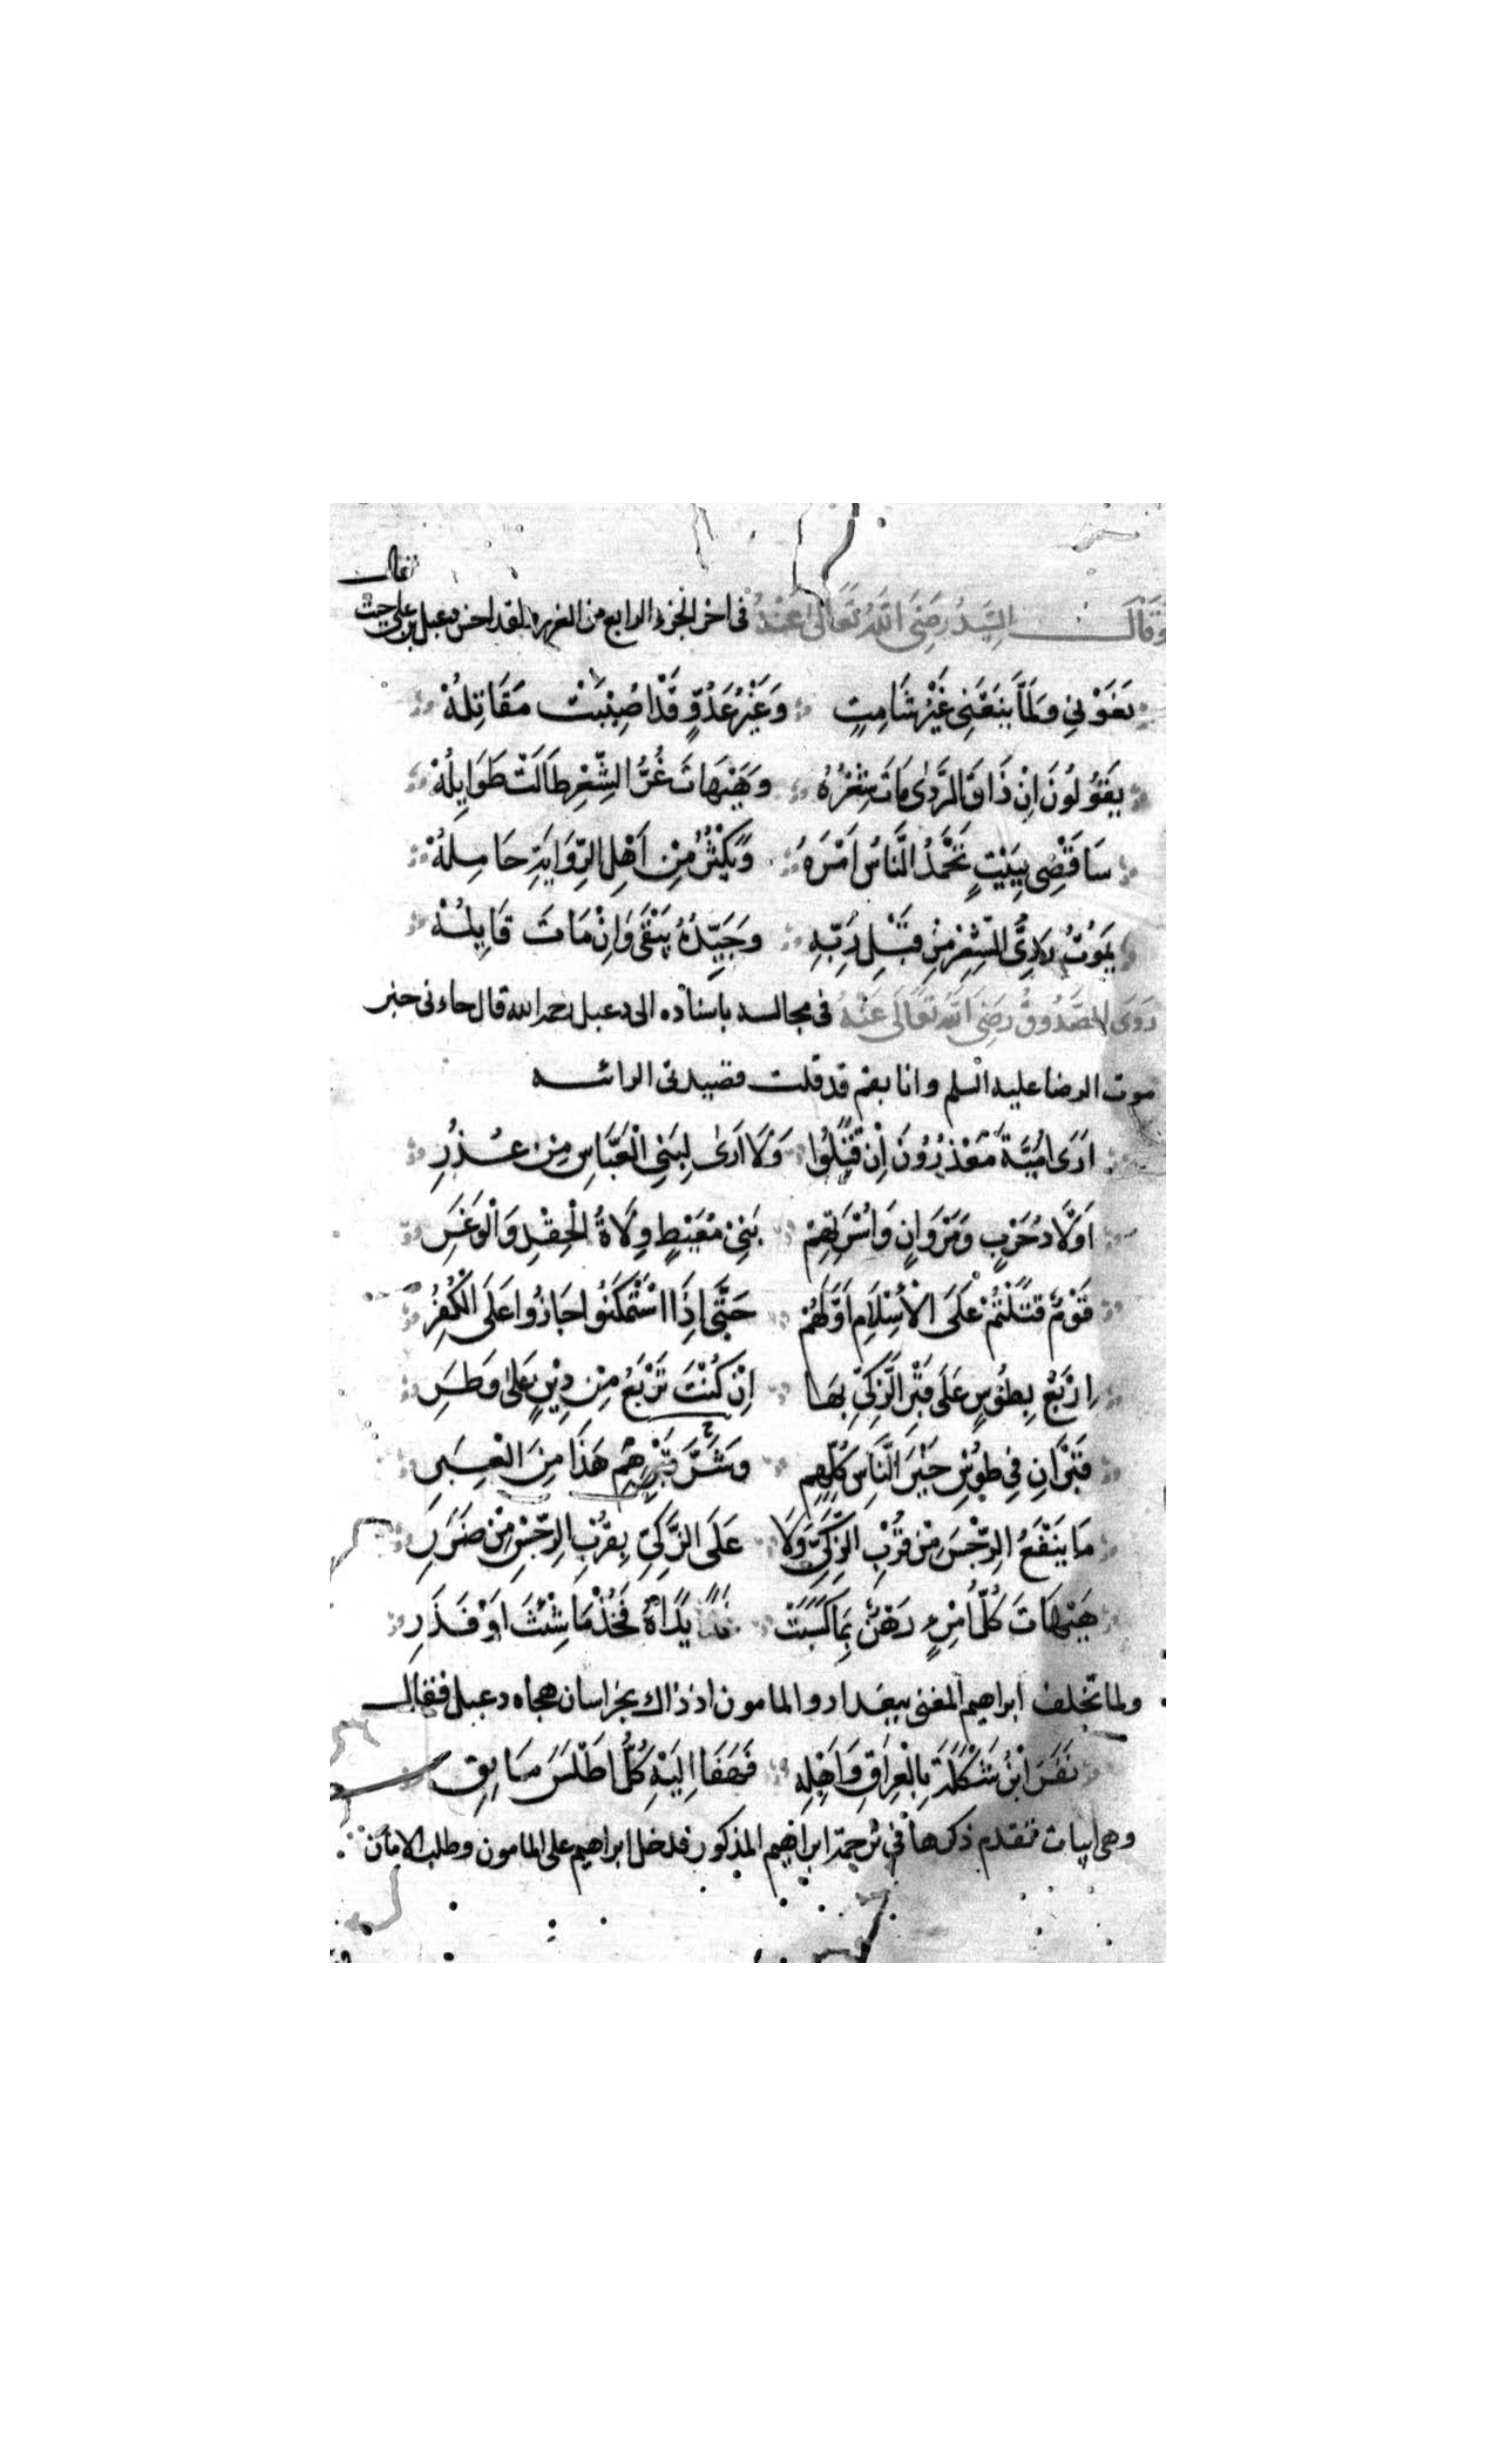 وقال السيد رضي الله تعالى عنه في اخر الجزء الرابع من الغرر لقد احسن دعبل بن علي حيث قال
نَعَوْنِي وَلَمَّا يَنْعَنِي غَيْرُ شَامِتٍ وَغَيْرُ عَدُوٍّ قَدْ اُصِيْبَتْ مَقَاتِلُهْ
يَقُوْلُونَ اِنْ ذَاقَ الرَّدٰى مَاتَ شِعْرُهُ وَهَيْهَاتَ عُمْرُ الشِّعْرِ طَالَتْ طَوَايِلُهْ
سَاَقْضِي بِبَيْتٍ يَحْمَدُ النَّاسُ اَمْرَهُ وَيَكْثُرُ مِنْ اَهْلِ الرِّوَايَةِ حَامِلُهْ
يَمُوْتُ رَدِيُّ الشِّعْرِ مِنْ قَبْلِ رَبِّهِ وَجَيِّدُهُ يَبْقَى وَاِنْ مَاتَ قَايِلُهْ
رَوَى الصَّدُوقُ رَضِيَ اللهُ تَعَالَى عَنْهُ في مجالسه باسناده الى دعبل رحمه الله قال جاءني خبر
موت الرضا عليه السلم وانا بقم قد قلت قصيدتي الرائيه
اَرَى اُمَيَّةَ مَعْذُوْرُونَ اِنْ قَتَلُوا وَلَا اَرٰى لِبَنِي الْعَبَّاسِ مِنْ عُذُرِ
اَوْلَادُ حَرْبٍ وَمَرْوَانٍ وَاُسْرَتِهِمْ بَنِيْ مُعَيْطٍ وُلَاةُ الْحِقْدِ وَالْوَغَرِ
قَوْمٌ قَتَلْتُمْ عَلَى الْاِسْلَامِ اَوَّلَهُمْ حَتَّى اِذَا اسْتَمْكَنُوا جَازُوا عَلَى الْكُفُرِ
اِرْبَعْ بِطُوْسٍ عَلَى قَبْرِ الزَّكِيِّ بِهَا اِنْ كُنْتَ تَرْبَعُ مِنْ دِيْنٍ عَلىٰ وَطَرِ
قَبْرَانِ فِي طُوْسِ خَيْرِ النَّاسِ كُلِّهِم وَشَرِّ قَبْرِهِمْ هَذَا مِنَ الْعِبَرِ
مَا يَنْفَعُ الرِّجْسَ مِنْ قُرْبِ الزَّكِيِّ وَلَا عَلَى الزَّكِيِّ بِقُرْبِ الرِّجْسِ مِنْ ضَرَرِ
هَيْهَاتَ كُلُّ امْرِءٍ رَهْنٌ بِمَا كَسَبَتْ يَدَاهُ فَخُذْ مَا شِئْتَ اَوْ فَذَرِ
ولما تخلف ابراهيم المغني ببغداد والمامون اذ ذاك بخراسان هجاه دعبل فقال
نَفَرَ ابْنُ شَكْلَةَ بِالْعِرَاقِ وَاَهْلِهِ فَهَفَا اِلَيْهِ كُلُّ اَطْلَسَ مَايِقِ
وهى ابيات تقدم ذكرها في ترجمة ابراهيم المذكور فدخل ابراهيم على المامون وطلب الامان